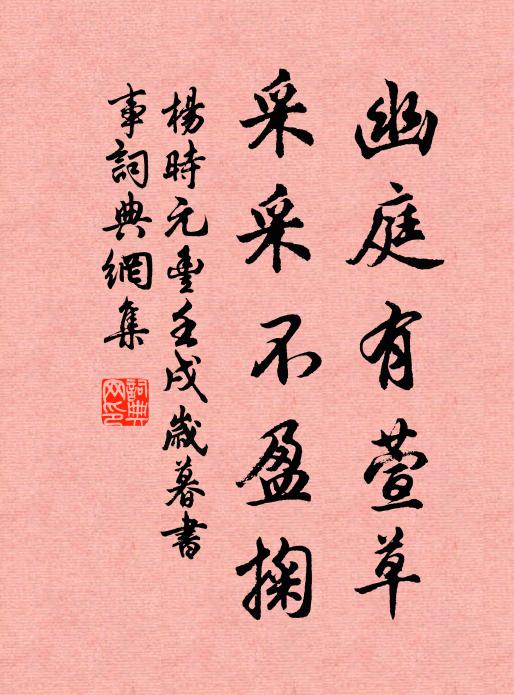 幽庭有萱草
采采不盈掬
楊時元豐壬戌歲暮書
事詞典網集
詞典網印